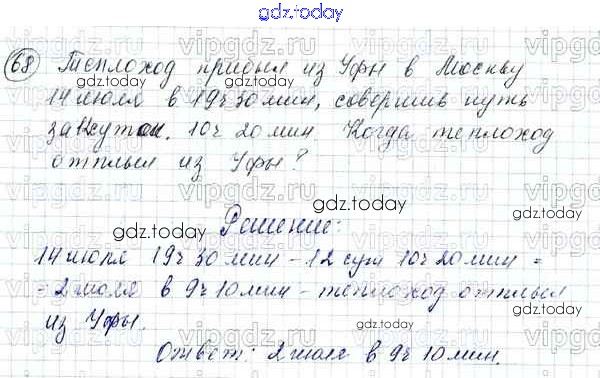 gdz.today
68 Теплоход прибыл из Уфы в Москву
14 июля в 19ч 30 мин, совершив путь
за 12 суток. 10ч 20 мин Когда теплоход
отплыл из Уфы?
Решение:
14 июля 19ч 30 мин - 12 сут 10ч 20 мин =
= 2 июля в 9ч 10 мин - теплоход отплыл
из Уфы.
Ответ: 2 июля в 9ч 10 мин.